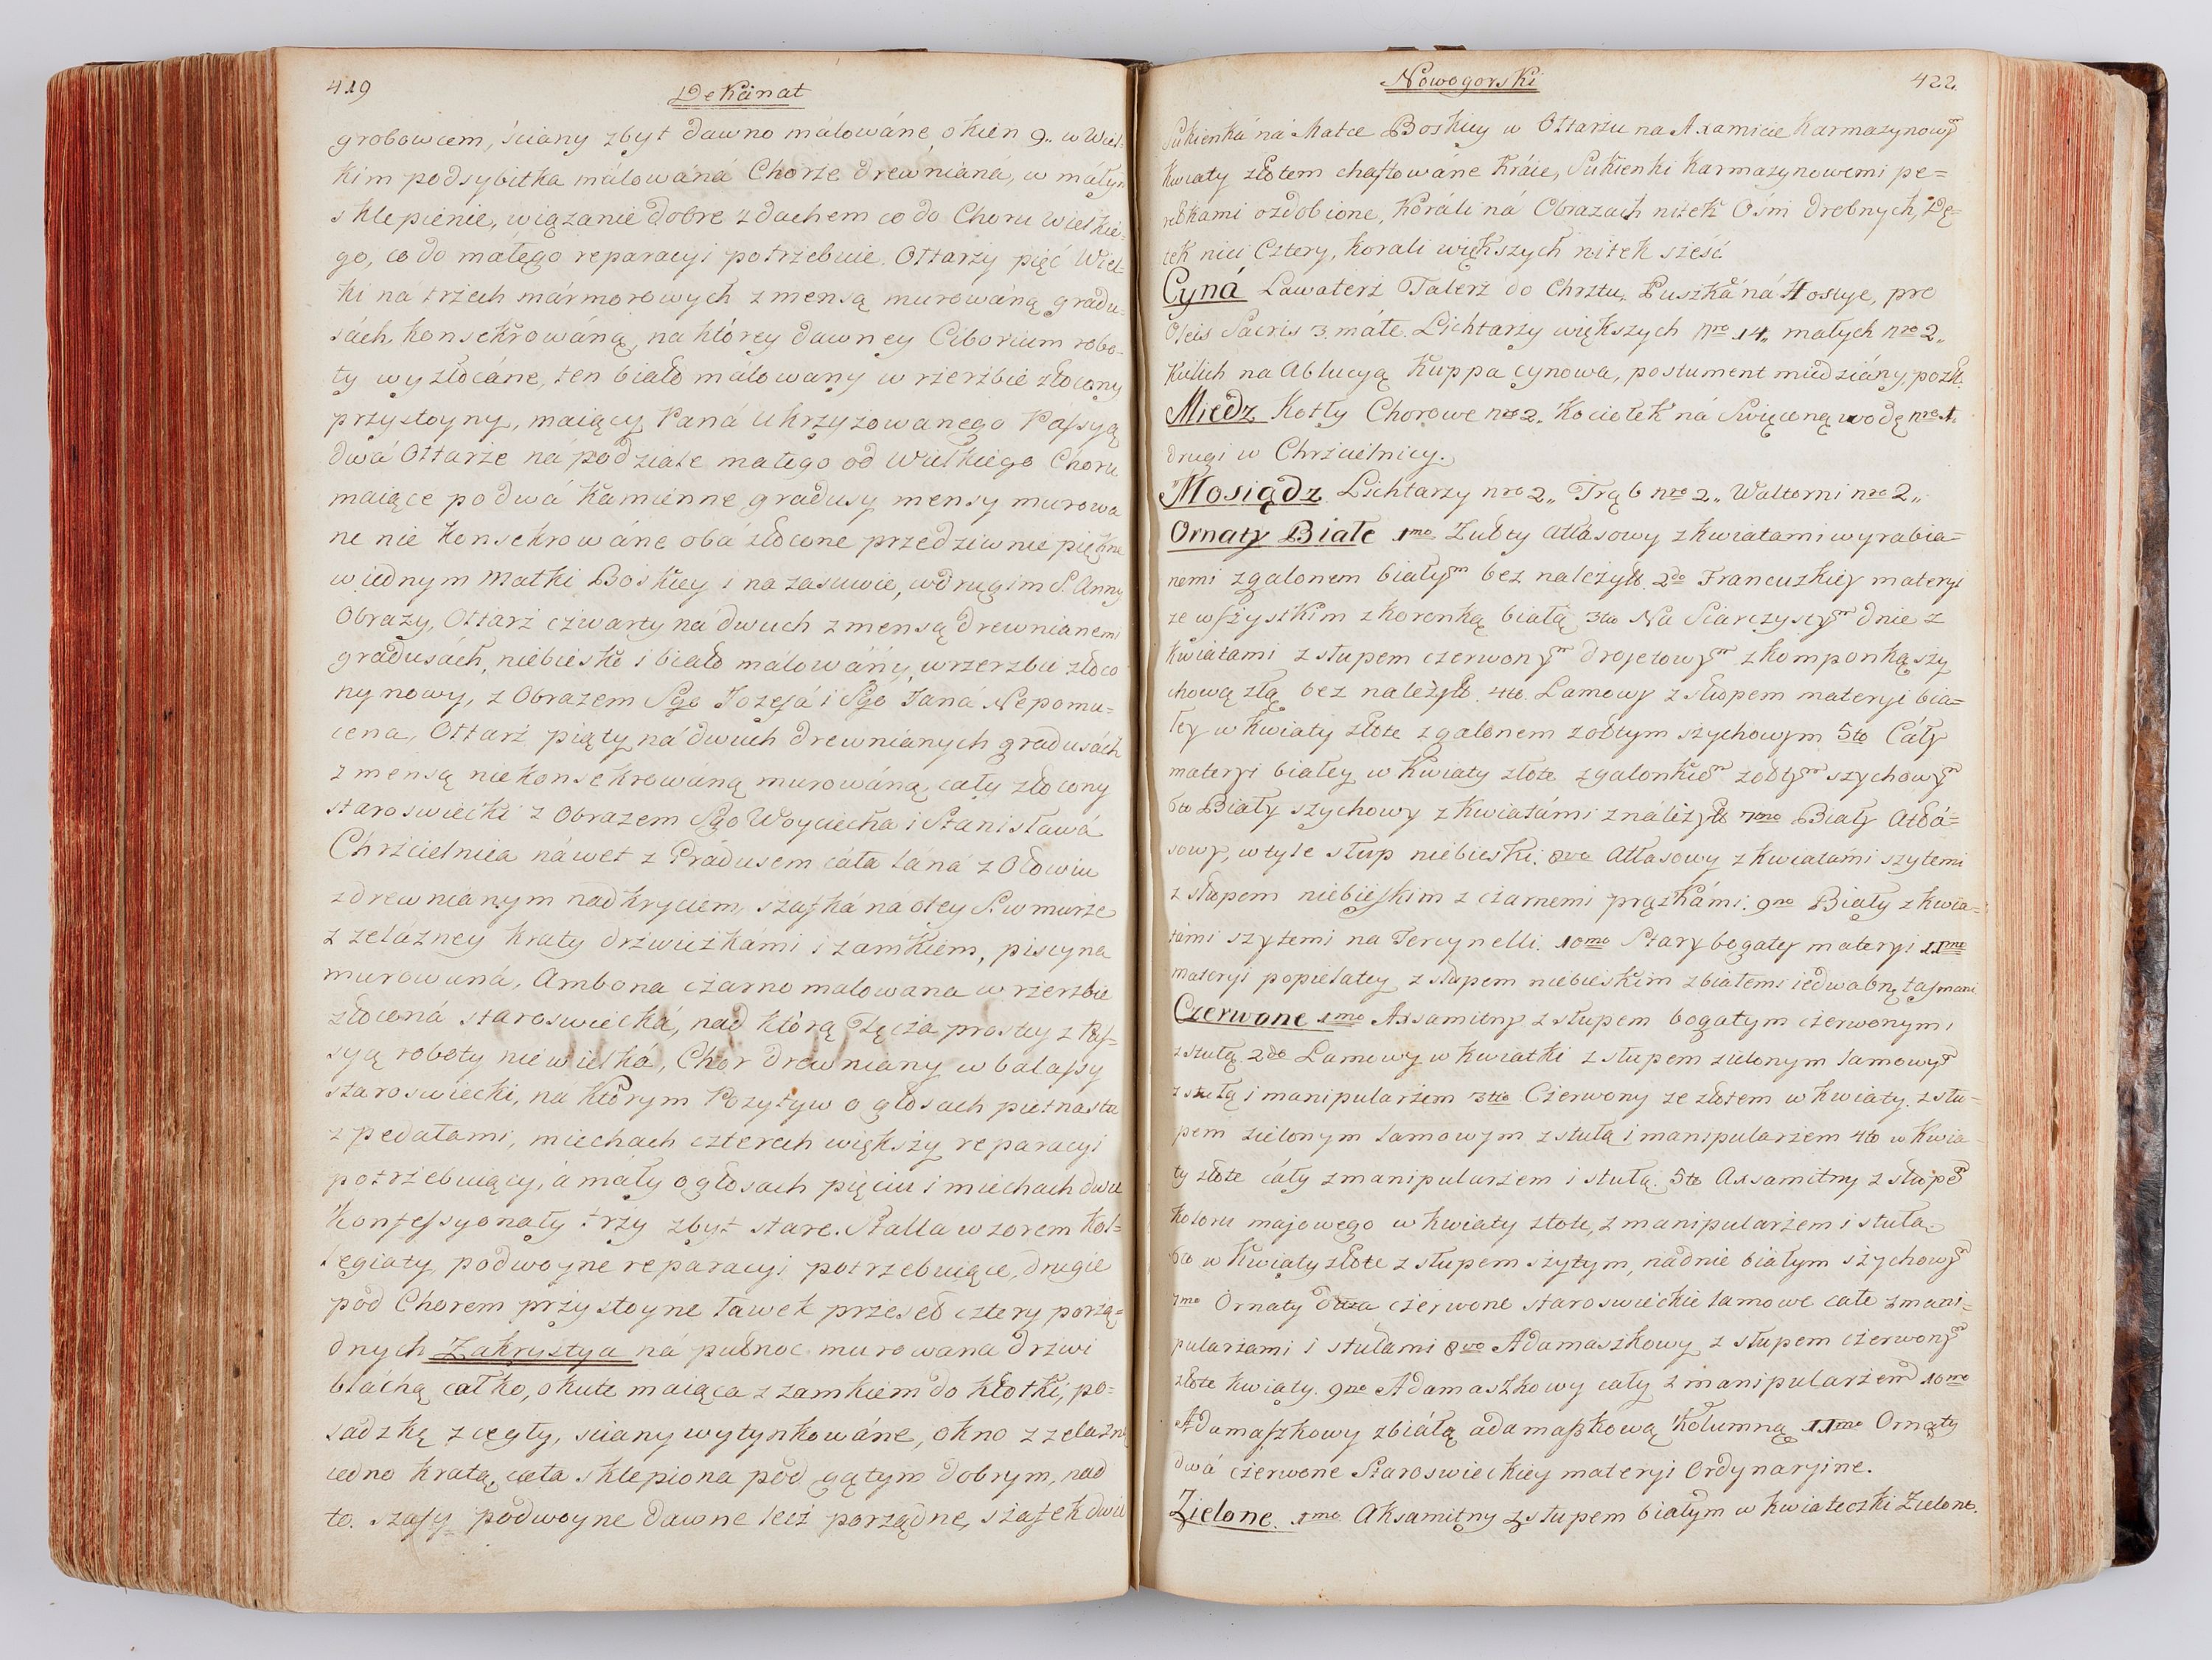 419
Dekánat
grobowcem, ściany zbyt dawno málowáne okien 9.. w Wiel-
kim podsybitka málowáná Chorze drewniáná, w máłym
sklepienie, wiązanie dobre z dachem co do Choru Wielkie-
go, co do małego reparacyi potrzebuie. Ołtarży pięć Wiel-
ki ná trzech mármorowych z mensą murowáną gradu-
sách konsekrowáną, na ktorey dawney Ciborium robo-
ty wyzłocáne, ten biało málowany w rzerzbie złocony
przystoyny, maiący Paná Ukrzyżowanego Passyą
dwá Ołtarze ná podziale małego od Wielkiego Choru
maiące po dwá kamienne gradusy mensy murowa
ne nie konsekrowáne obá złocone przedziwnie piękne
w iednym Matki Boskiey i na zasuwie, w drugim S. Anny
Obrazy, Ołtarz czwarty ná dwuch z mensą drewnianemi
gradusách, niebiesko i biało málowány, w rzerzbie złoco
ny nowy, z Obrazem Sgo Jozefá i Sgo Janá Nepomu-
cena, Ołtarz piąty ná dwuch drewnianych gradusách
z mensą niekonsekrowáną murowáną, cały złocony
staroswiecki z Obrazem Sgo Woyciecha i Stanisławá
Chrzcielnica náwet z Grádusem cáła láná z Ołowiu
z drewnianym nadkryciem, szafká ná oley S. w murze
z zelazney kraty drzwiczkámi i zamkiem, piscyna
murowaná, Ambona czarno malowana w rzerzbie
złoconá staroswiecká, nad ktorą Tęcza prostey z Pas-
syą roboty niewielká, Chor drewniany w balasy
staroswiecki, ná ktorym Pozytyw o głosach pietnastu
z pedałami, miechach czterech większy reparacyi
potrzebuiący, á mały o głosach pięciu i miechach dwu
Konfessyonały trzy zbyt stare. Stalla wzorem Kol-
legiaty podwoyne reparacyi potrzebuiące, drugie
pod Chorem przystoyne ławek przeseł cztery porzą-
dnych Zakrystya ná pułnoc murowana drzwi
bláchą całko, okute maiąca z zamkiem do kłotki, po-
sadzką z cegły, sciany wytynkowáne, okno z zelazną
iedno kratą, cała sklepiona pod gątym dobrym, nad
to. szafy podwoyne dawne lecz porządne, szafek dwie
Nowogorski
422
Sukienká ná Matce Boskiey w Ołtarzu na Axamicie karmazynowym
kwiaty złotem chaftowáne kráie, Sukienki karmazynowemi pe=
rełkami ozdobione, Koráli ná Obrazach nitek Ośm drobnych, Dę-
tek nici Cztery, korali większych nitek sześć
Cyná Lawaterz Talerz do Chrztu, Puszká ná Hostye, pro
Oleis Sacris 3. máłe. Lichtarzy większych nro 14,, małych nro 2,,
Kielich na Ablucyą Kuppa cynowa, postument miedziány, pozł.
Miedz Kotły Chorowe nro 2. Kociołek ná Swięconą wodę nro 1.
drugi w Chrzcielnicy.
Mosiądz Lichtarzy nro 2,, Trąb nro 2,, Waltorni nro 2,,
Ornaty Białe 1mo Zułty atłasowy z kwiatami wyrabia=
nemi z galonem białym bez należyto. 2do Francuzkiey materyi
ze wszystkim z koronką białą 3tio Na Siarczystym dnie z
kwiatami z słupem czerwonym drojetowym z komponką szy
chową złą bez należyto. 4to. Lamowy z słupem materyi bia=
łey w kwiaty złote z galonem zołtym szychowym 5to Cáły
materyi białey w kwiaty złote z galonkiem zołtym szychowym
6to Biały szychowy z kwiatámi z náleżyto 7mo Biały Atłá=
sowy, w tyle słup niebieski. 8vo Atłasowy z kwiatámi szytemi
z słupem niebieskim z czarnemi prązkámi. 9no Biały z kwia=
támi szytemi na Tercynelli. 10mo Stary bogatey materyi 11mo
materyi popielatey z słupem niebieskim z białemi iedwabną tasmani
Czerwone 1mo Axamitny z słupem bogatym czerwonym,
z stułą. 2do Lamowy w kwiatki z słupem zielonym lamowym
z stułą i manipularzem 3tio Czerwony ze złotem w kwiaty. z słu-
pem zielonym lamowym z stułą i manipularzem 4to w kwia-
ty złote cáły z manipularzem i stułą. 5to Axamitny z słupem
koloru majowego w kwiaty złote, z manipularzem i stuła.
6to w kwiaty złote z słupem szytym, ná dnie białym szychowym
7mo Ornaty dwa czerwone staroswieckie lamowe całe z mani=
pularzami i stułami 8vo Adamaszkowy z słupem czerwonym
złote kwiaty. 9no Adamaszkowy cały z manipularzem 10mo
Adamaszkowy z białą adamaszkową kolumną 11mo Ornaty
dwá czerwone Staroswieckiey materyi Ordynaryine.
Zielone. 1mo Aksamitny z słupem białym w kwiateczki Zielone.